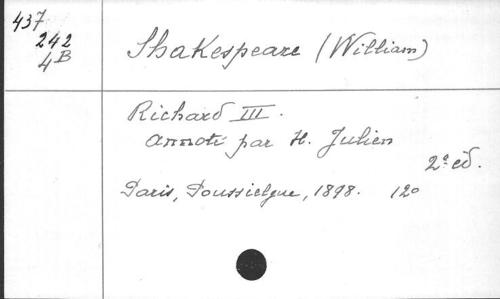 437
242
4B
Shakespeare (William)
Richard III.
annoté par H. Julien
2e éd.
Paris, Poussielgue, 1898. 12o